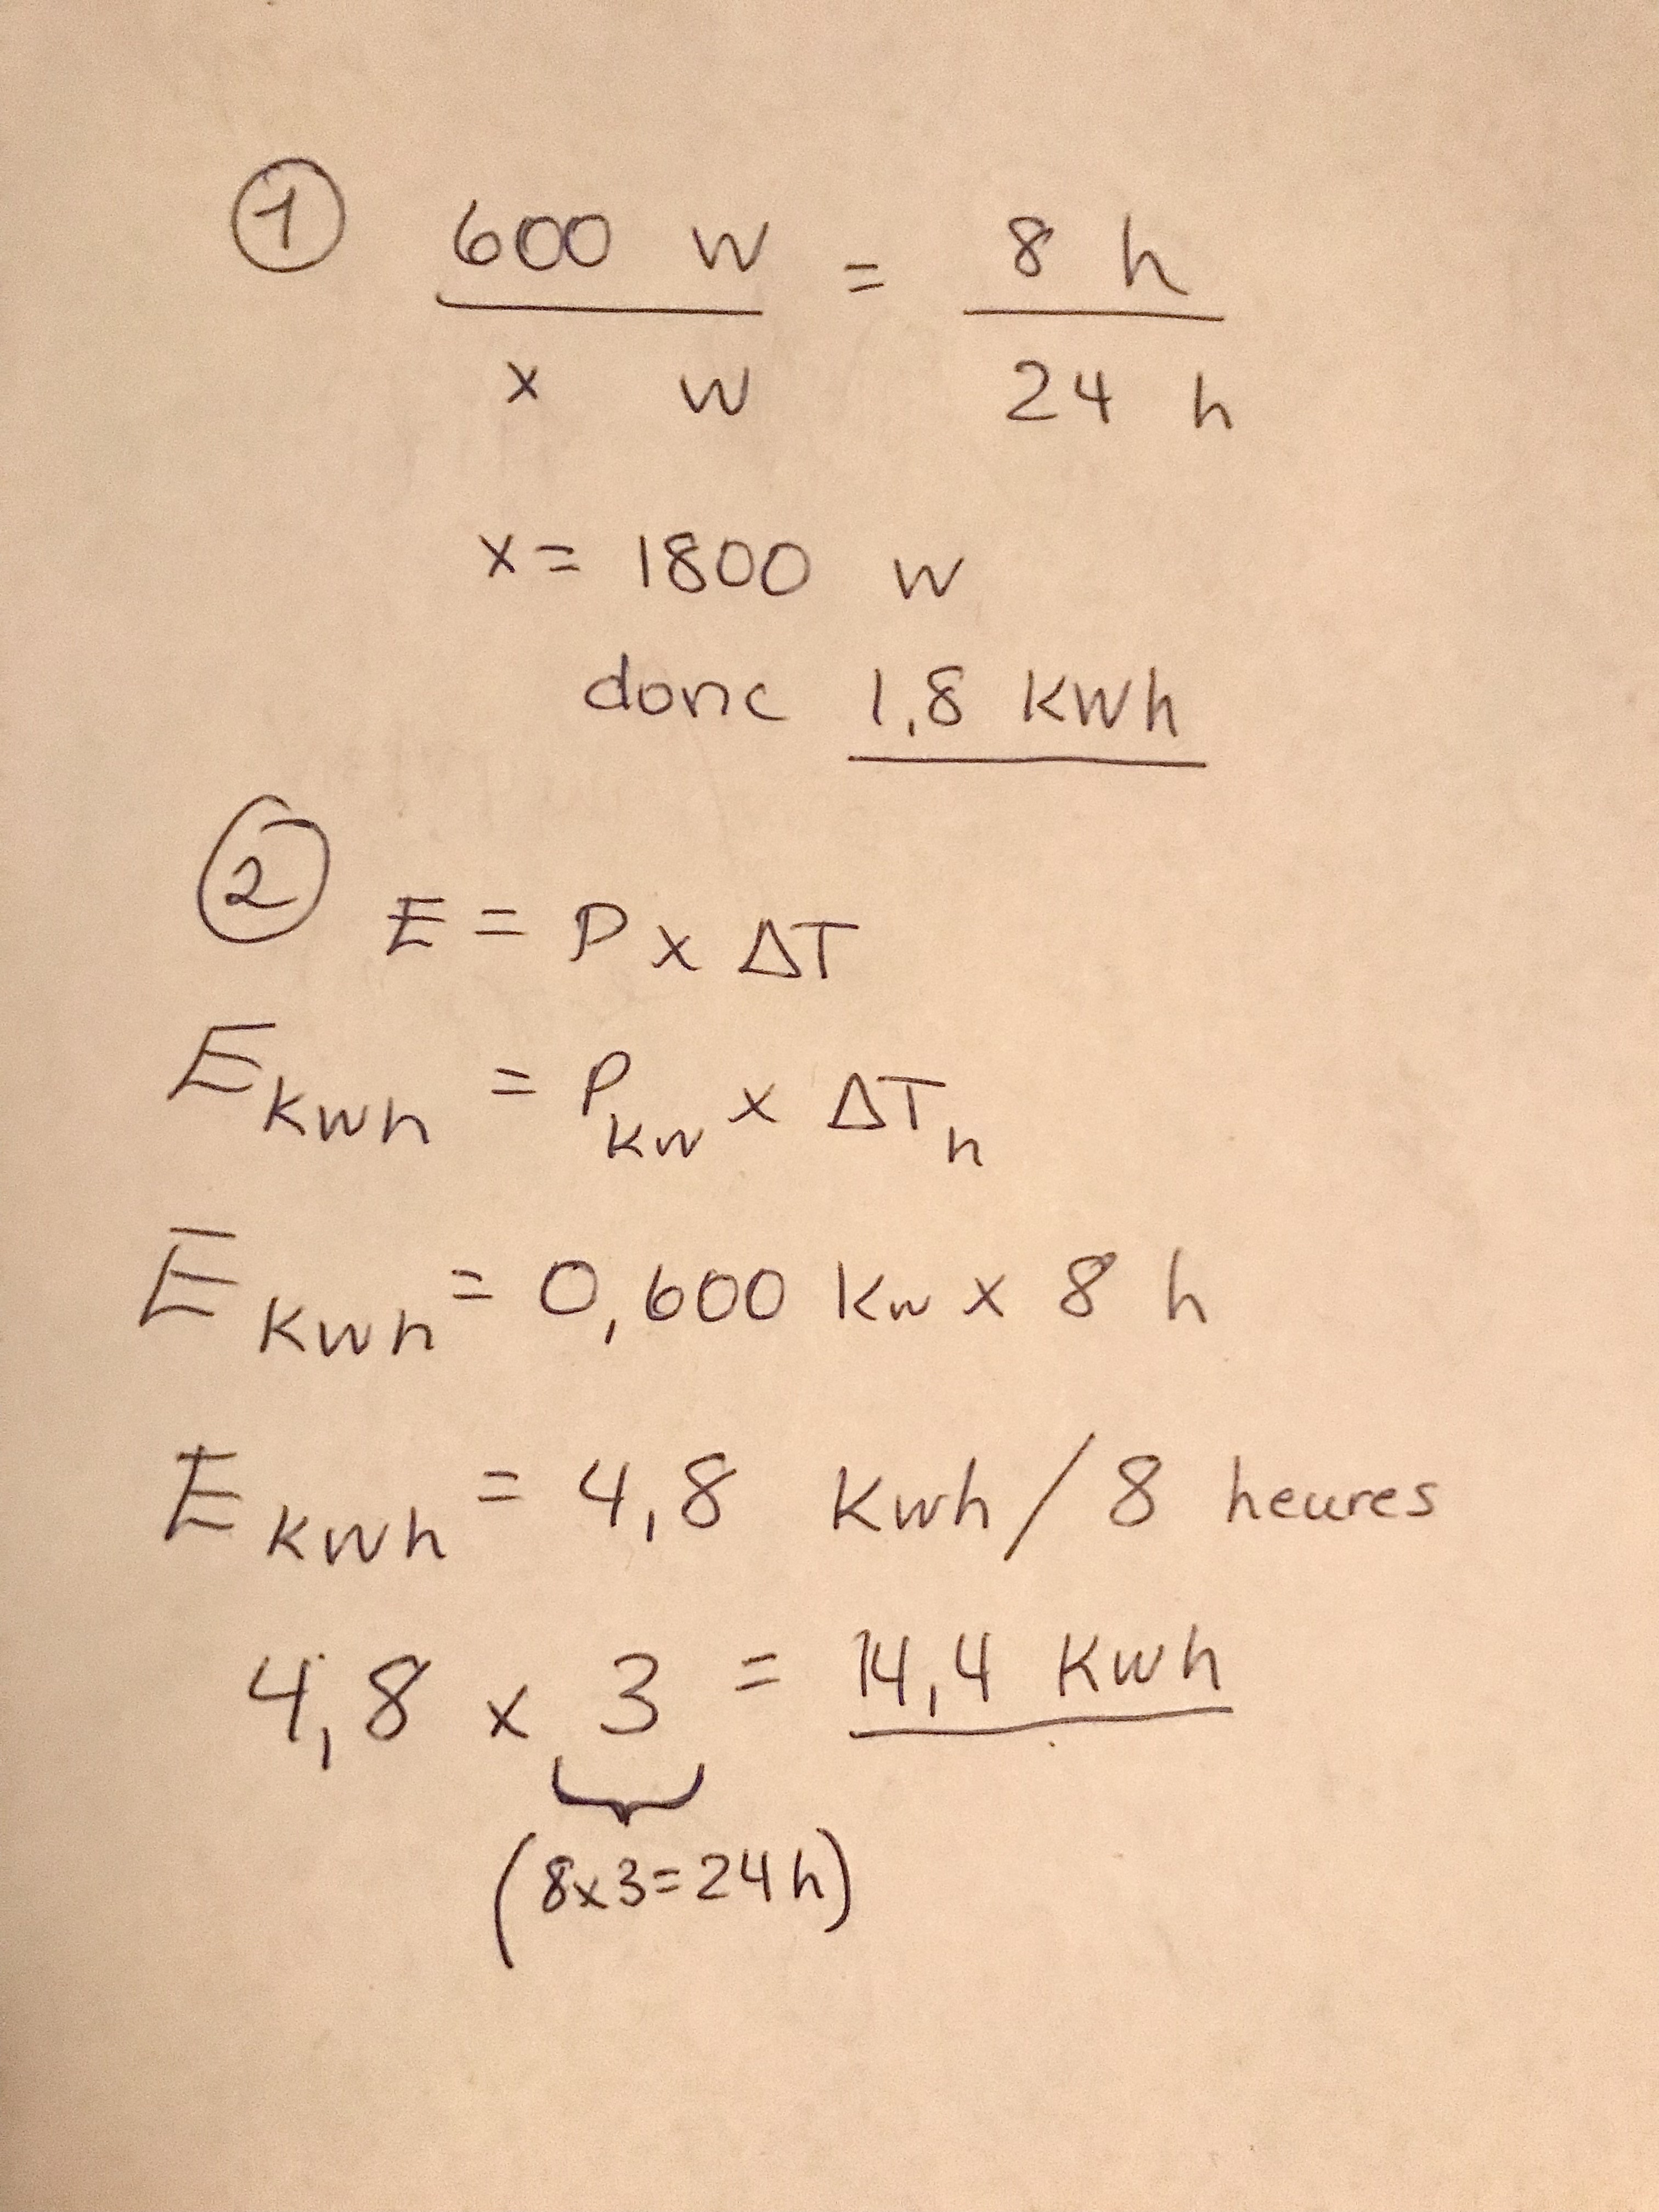 ① 600 W = 8 h
x W 24 h
x = 1800 W
donc 1,8 KWh
② E = P x ΔT
E KWh = P KW x ΔT h
E KWh = 0,600 KW x 8 h
E KWh = 4,8 KWh / 8 heures
4,8 x 3 = 14,4 KWh
(8x3=24h)